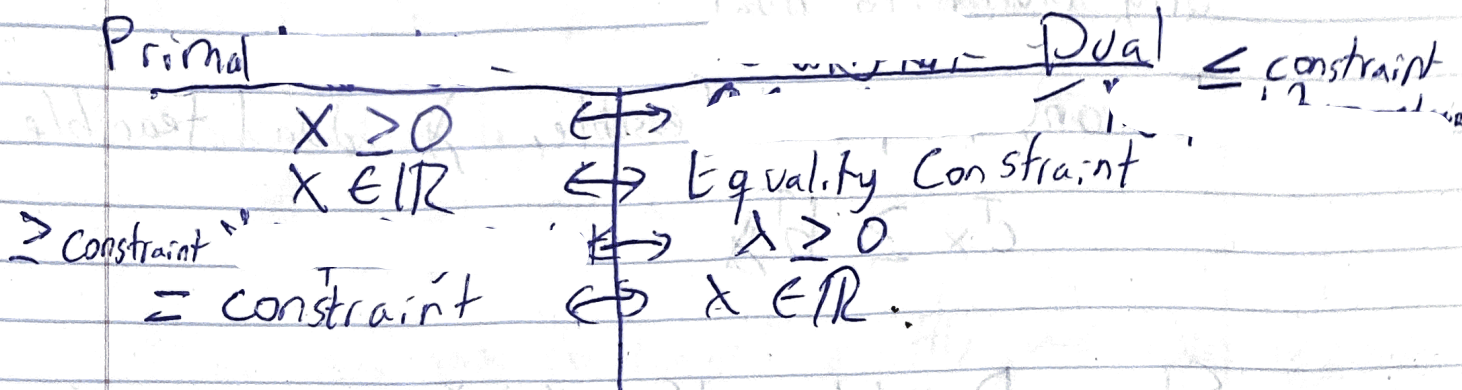 Primal Dual
≤ constraint
X ≥ 0 ↔
X ∈ ℝ ↔ Equality Constraint
≥ constraint ↔ λ ≥ 0
= constraint ↔ λ ∈ ℝ.